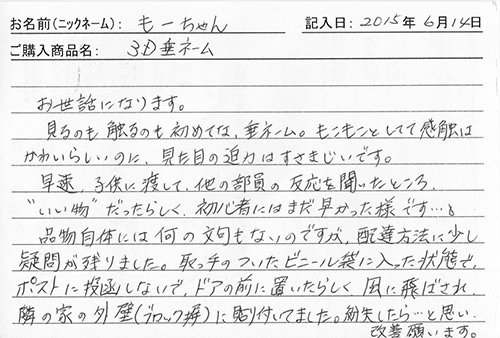 お名前(ニックネーム): もーちゃん 記入日: 2015年 6月14日
ご購入商品名: 3D垂ネーム
お世話になります。
見るのも触るのも初めてな、垂ネーム。もこもことしてて感触は
かわいらしいのに、見た目の迫力はすさまじいです。
早速、子供に渡して、他の部員の反応を聞いたところ、
"いい物"だったらしく、初心者にはまだ早かった様です…。
品物自体には何の文句もないのですが、配達方法に少し
疑問が残りました。取っ手のついたビニール袋に入った状態で、
ポストに投函しないで、ドアの前に置いたらしく 風に飛ばされ、
隣の家の外壁(ブロック塀)に貼付いてました。紛失したら…と思い、
改善願います。